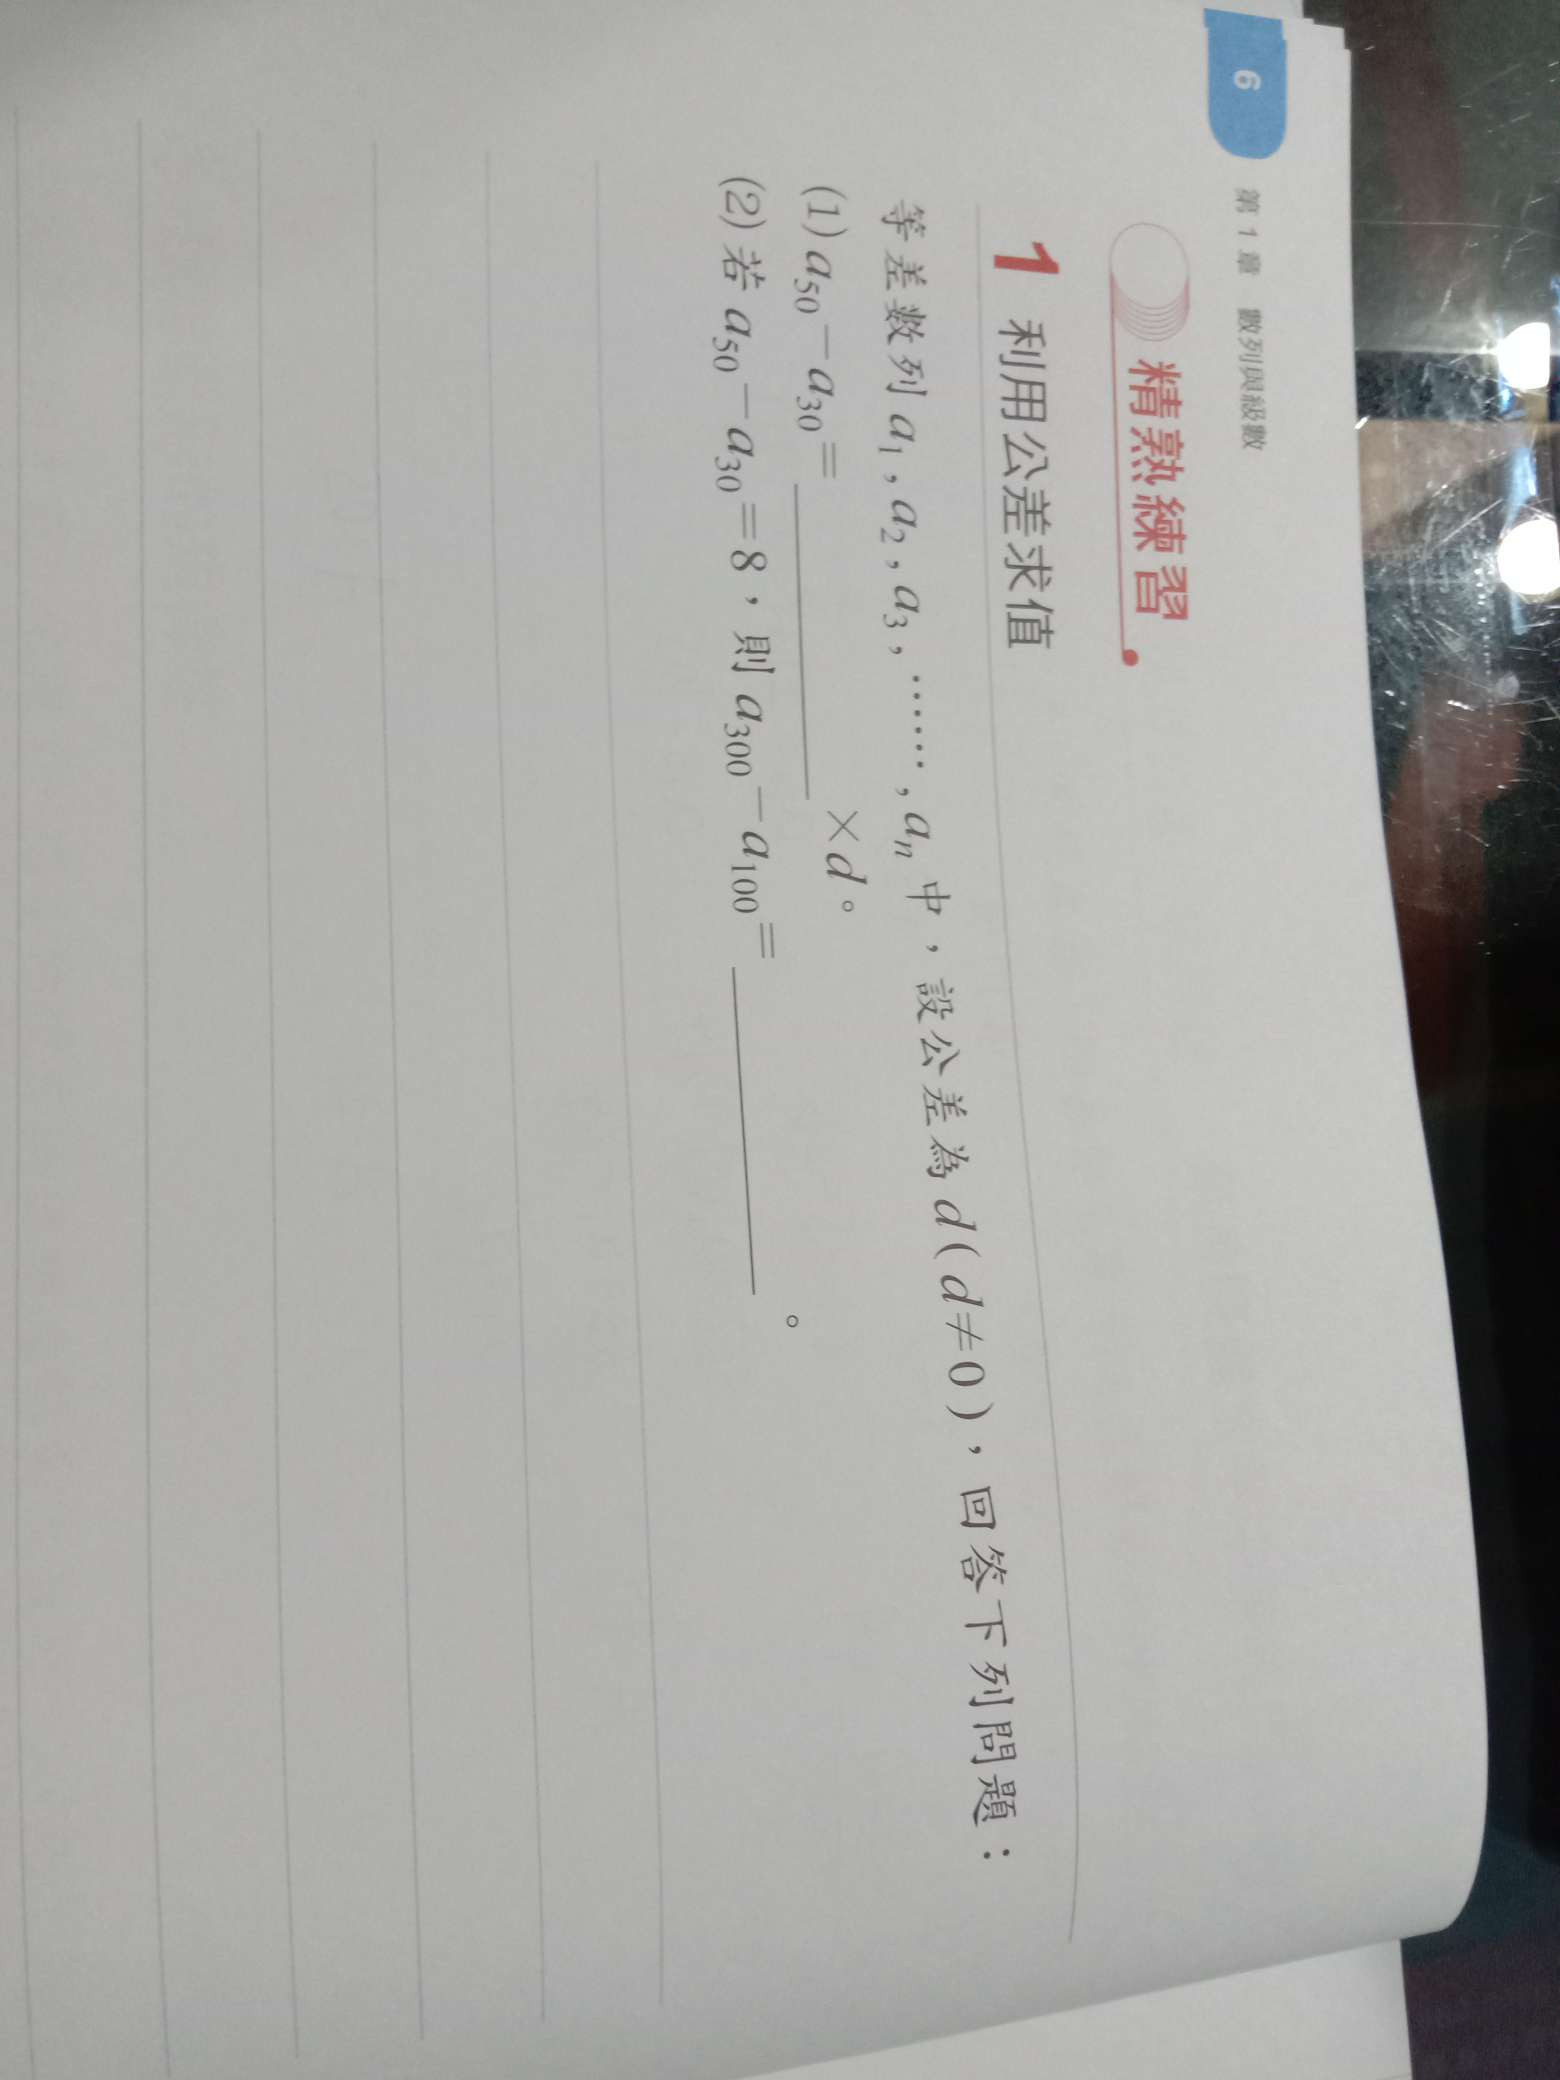 6
第1章 數列與級數
精熟練習
1 利用公差求值
等差數列 a₁, a₂, a₃, ……, aₙ 中，設公差為 d ( d≠0 )，回答下列問題：
(1) a₅₀−a₃₀= ________ ×d。
(2) 若 a₅₀−a₃₀=8，則 a₃₀₀−a₁₀₀= ________ 。